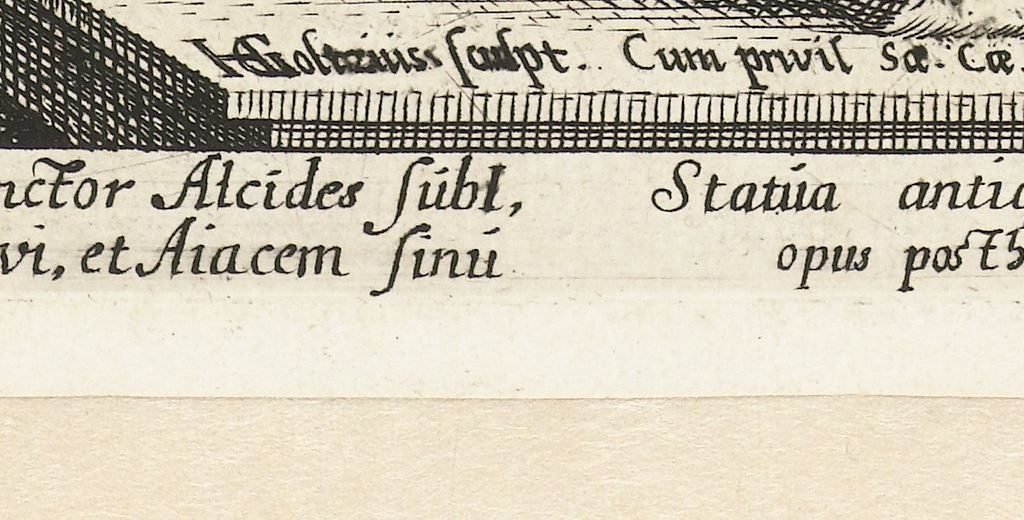 HGoltzius sculpt. Cum privil Sæ. Cæ.
nctor Alcides ſubl, Statua antiq
vi, et Aiacem ſinu opus posth